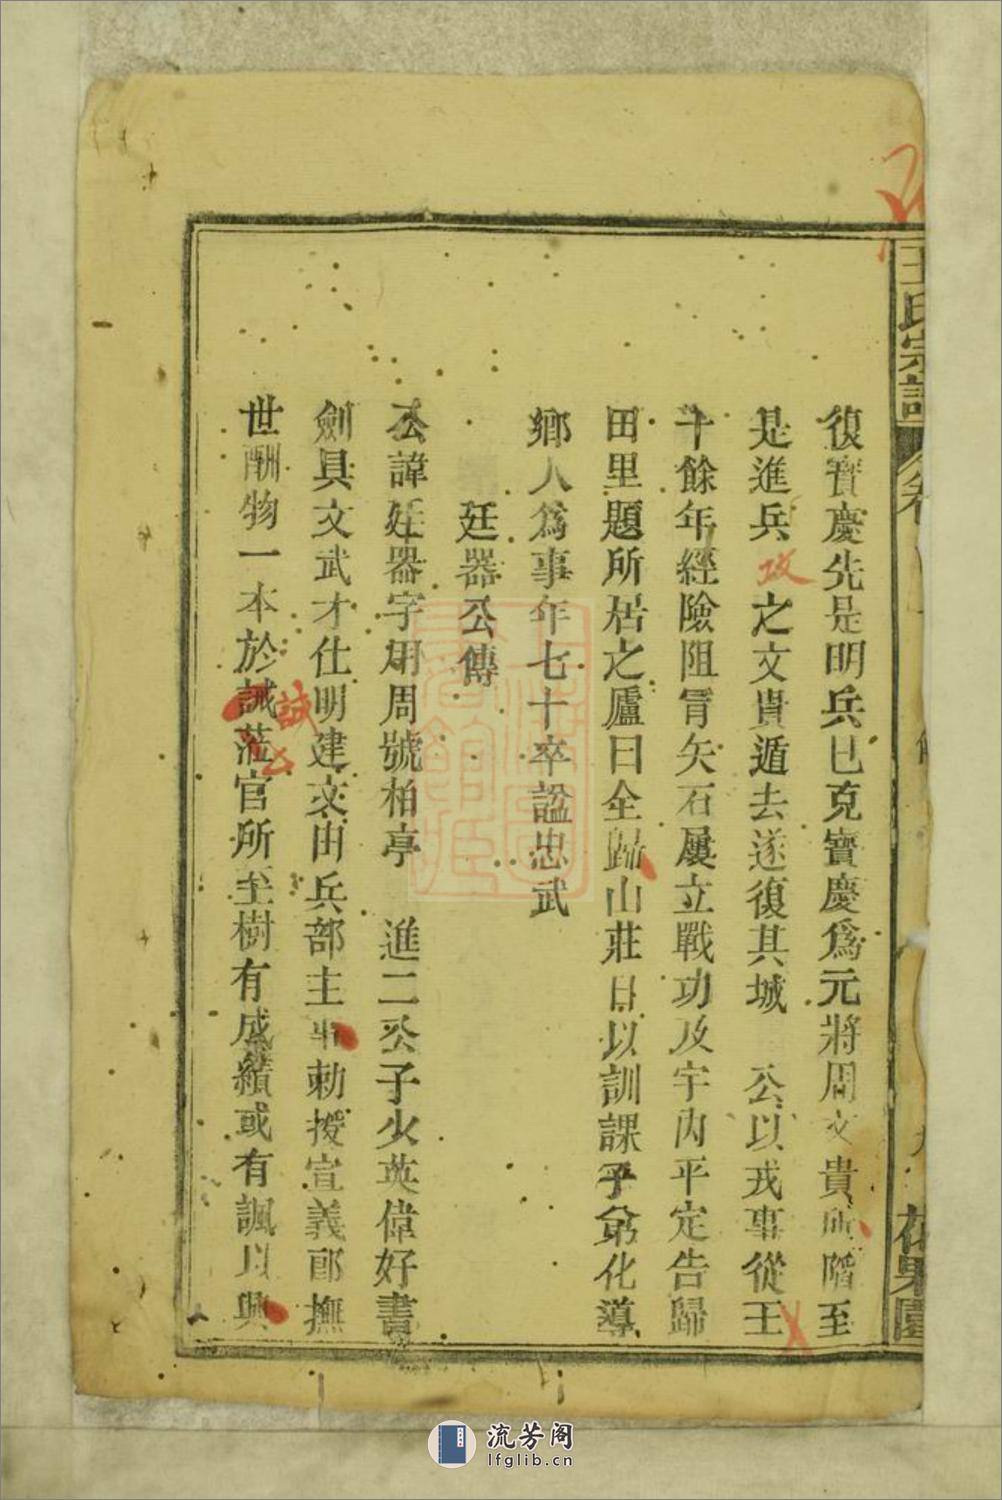 王氏宗譜
卷
九
花果園
復寶慶先是明兵已克寶慶爲元將周文貴所陷至
是進兵攻之文貴遁去遂復其城 公以戎事從王
十餘年經險阻冒矢石屢立戰功及宇內平定告歸
田里題所居之廬曰全歸山莊日以訓課子弟化導
鄉人爲事年七十卒諡忠武
廷器公傳
公諱廷器字用周號柏亭 進二公子少英偉好書
劍具文武才仕明建文由兵部主事勅授宣義郎撫
世酬物一本於誠蒞官所至樹有成績或有諷以興
誠公
流芳阁
lfglib.cn